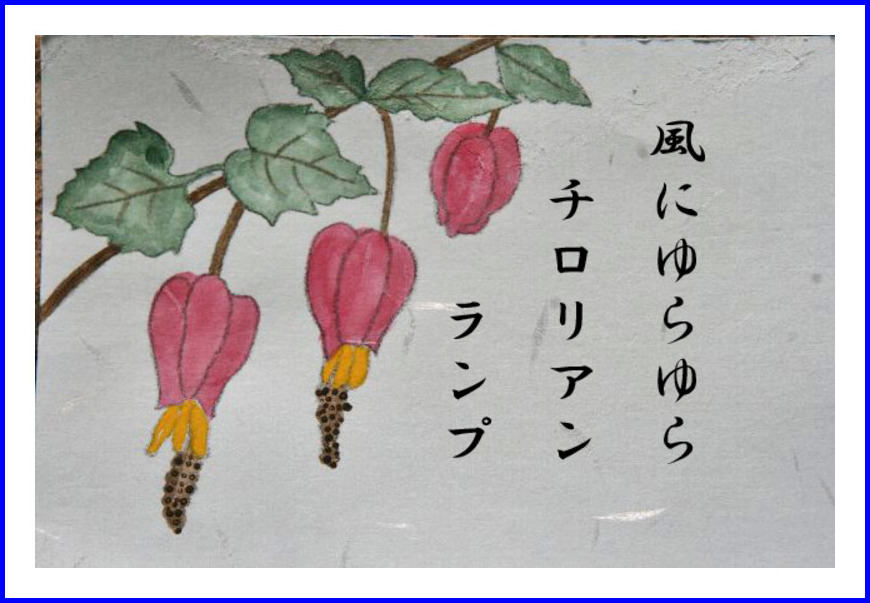 風にゆらゆら
チロリアン
ランプ